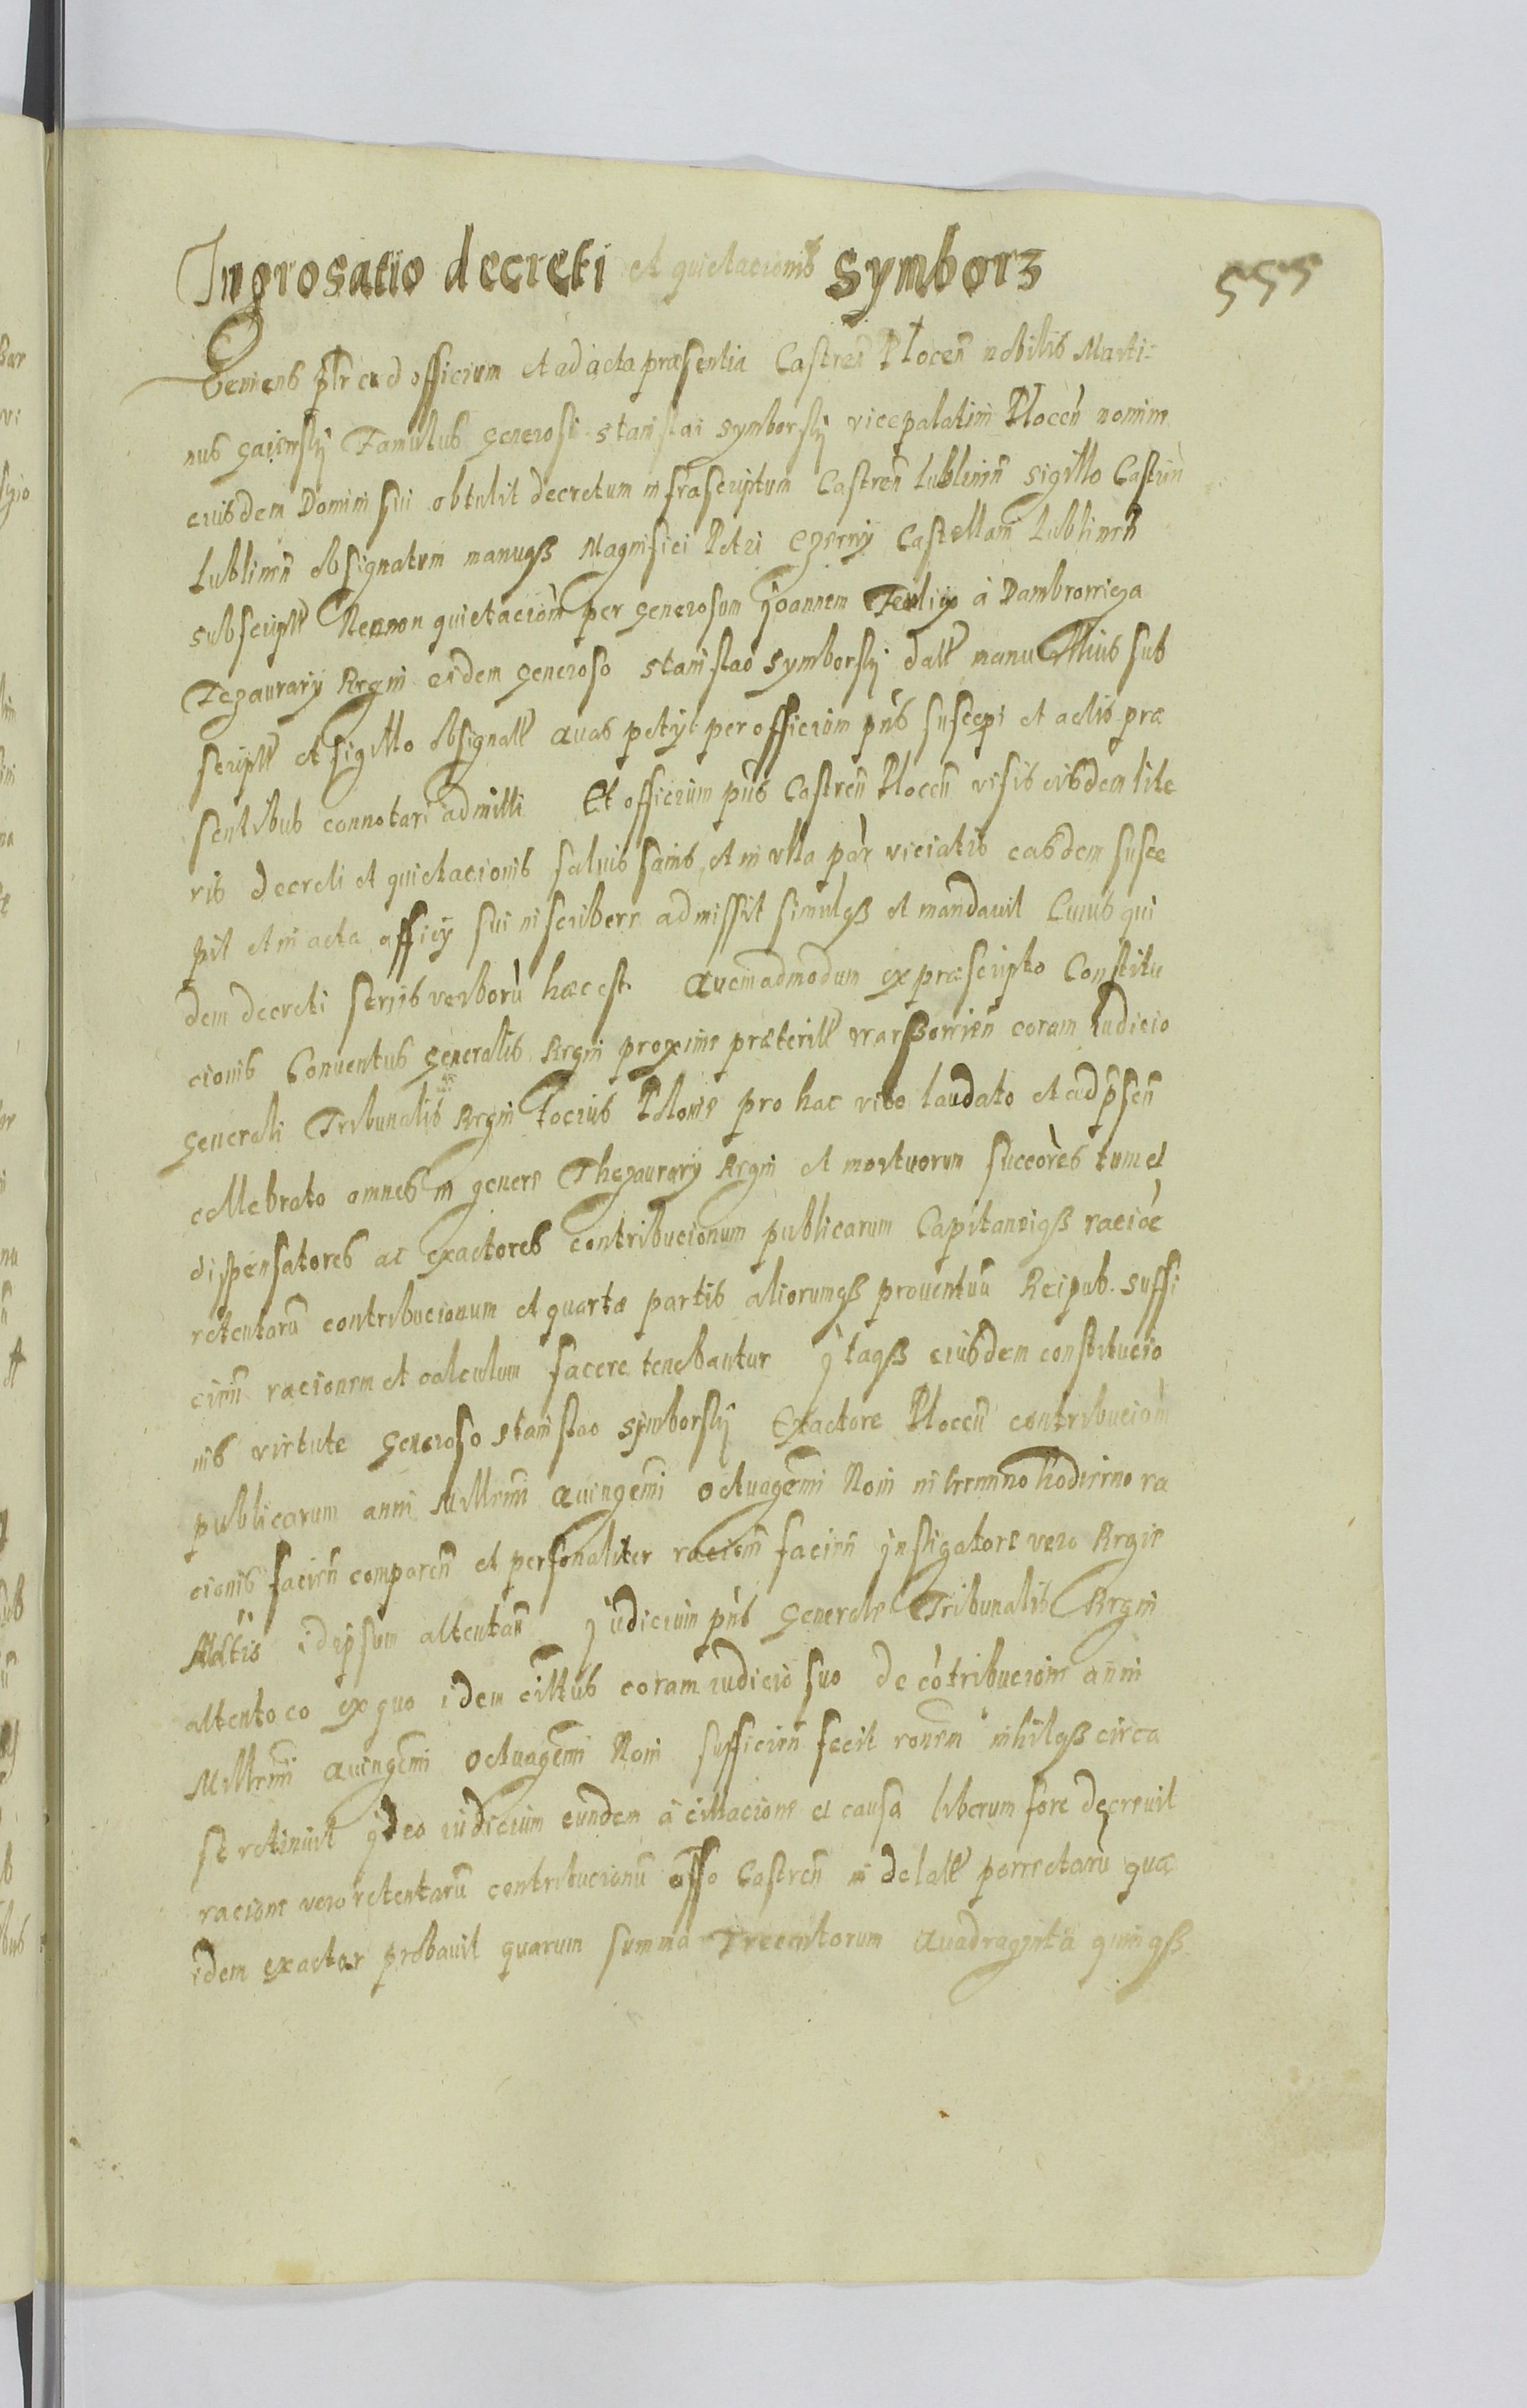 Ingrosatio decreti et quietacionis symborz
555
Veniens pͬlr ad officium et ad acta præsentia Castreñ Ploceñ nobilis Marti=
nus Famulus generosi stanislai symborskj vicepalatini Ploceñ nomine
eiusdem Domini sui obtulit decretum infrascriptum Castreñ lublineñ sigillo Castreñ
lublineñ obsignatum manuqß Magnifici Petri Czerny Castellani lublineñ
subscript Necnon quietacionem per generosum Joannem à
Tezaurarÿ Regni eidem generoso stanislao symborskj datt manu illius sub
script et sigillo obsignatt quas petÿt per officium pñs suscepi et actis præ
sentibus connotari admitti Et officium pñs Castreñ Ploceñ visis eisdem lite
ris decreti et quietacionis saluis sanis et in vlla pàr viciatis easdem susce
pit et in acta officÿ sui inscribere admissit simulqß et mandauit Cuius qui
dem decreti series verborù hæc est Quemadmodum ex præscripto Constitu
cionis Conuentus generalis Regni proxime præteritt warßowień coram Iudicio
generali Tribunalis Regni tocius Polonie pro hac vice laudato et ad pñseñ
cellebrato omnes in genere Thezaurarÿ Regni et mortuorum succòres tum et
dispensatores ac exactores contribucionum publicarum Capitaneiqß racioè
retentarũ contribucionum et quartæ partis aliorumqß prouentuũ Reipub. suffi
cieñ racionem et calculum facere tenebantur Itaqß eiusdem constitucio
nis virtute generoso stanislao symborskj Exactore Ploceñ contribucionũ
publicarum anni Millemi Quingemi octuagemi Noni in termino hodierno ra
cionis facieñ compareñ et personaliter racioñ facieñ Instigatore vero Regie
Mattis idipsum attentañ Iudicium pñs generale Tribunalis Regni
attento eo ex quo idem cittus coram iudicio suo de còtribucione anni
Millemi Quingemi octuagemi Noni sufficieñ fecit ronem nihilqß circa
se retinuit Ideo iudicium eundem à cittacione et causa liberum fore decreuit
racione vero retentarũ contribucionũ offo Castreñ in delatt quæ
idem exactor probauit quarum summa Trecentorum Quadraginta quinqß